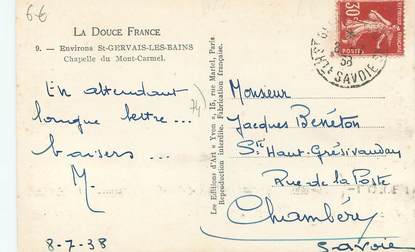 6-6
LA DOUCE FRANCE
9. — Environs St-GERVAIS-LES-BAINS
Chapelle du Mont-Carmel.
En attendant
longue lettre...
baisers...
M.
8-7-38
74
Les Editions d'Art « Yvon », 15, rue Martel, Paris
Reproduction interdite. Fabrication française.
30
POSTES
38
SAVOIE
Monsieur
Jacques Benéton
Sté Haut-Grésivaudan
Rue de la Poste
Chambéry
Savoie